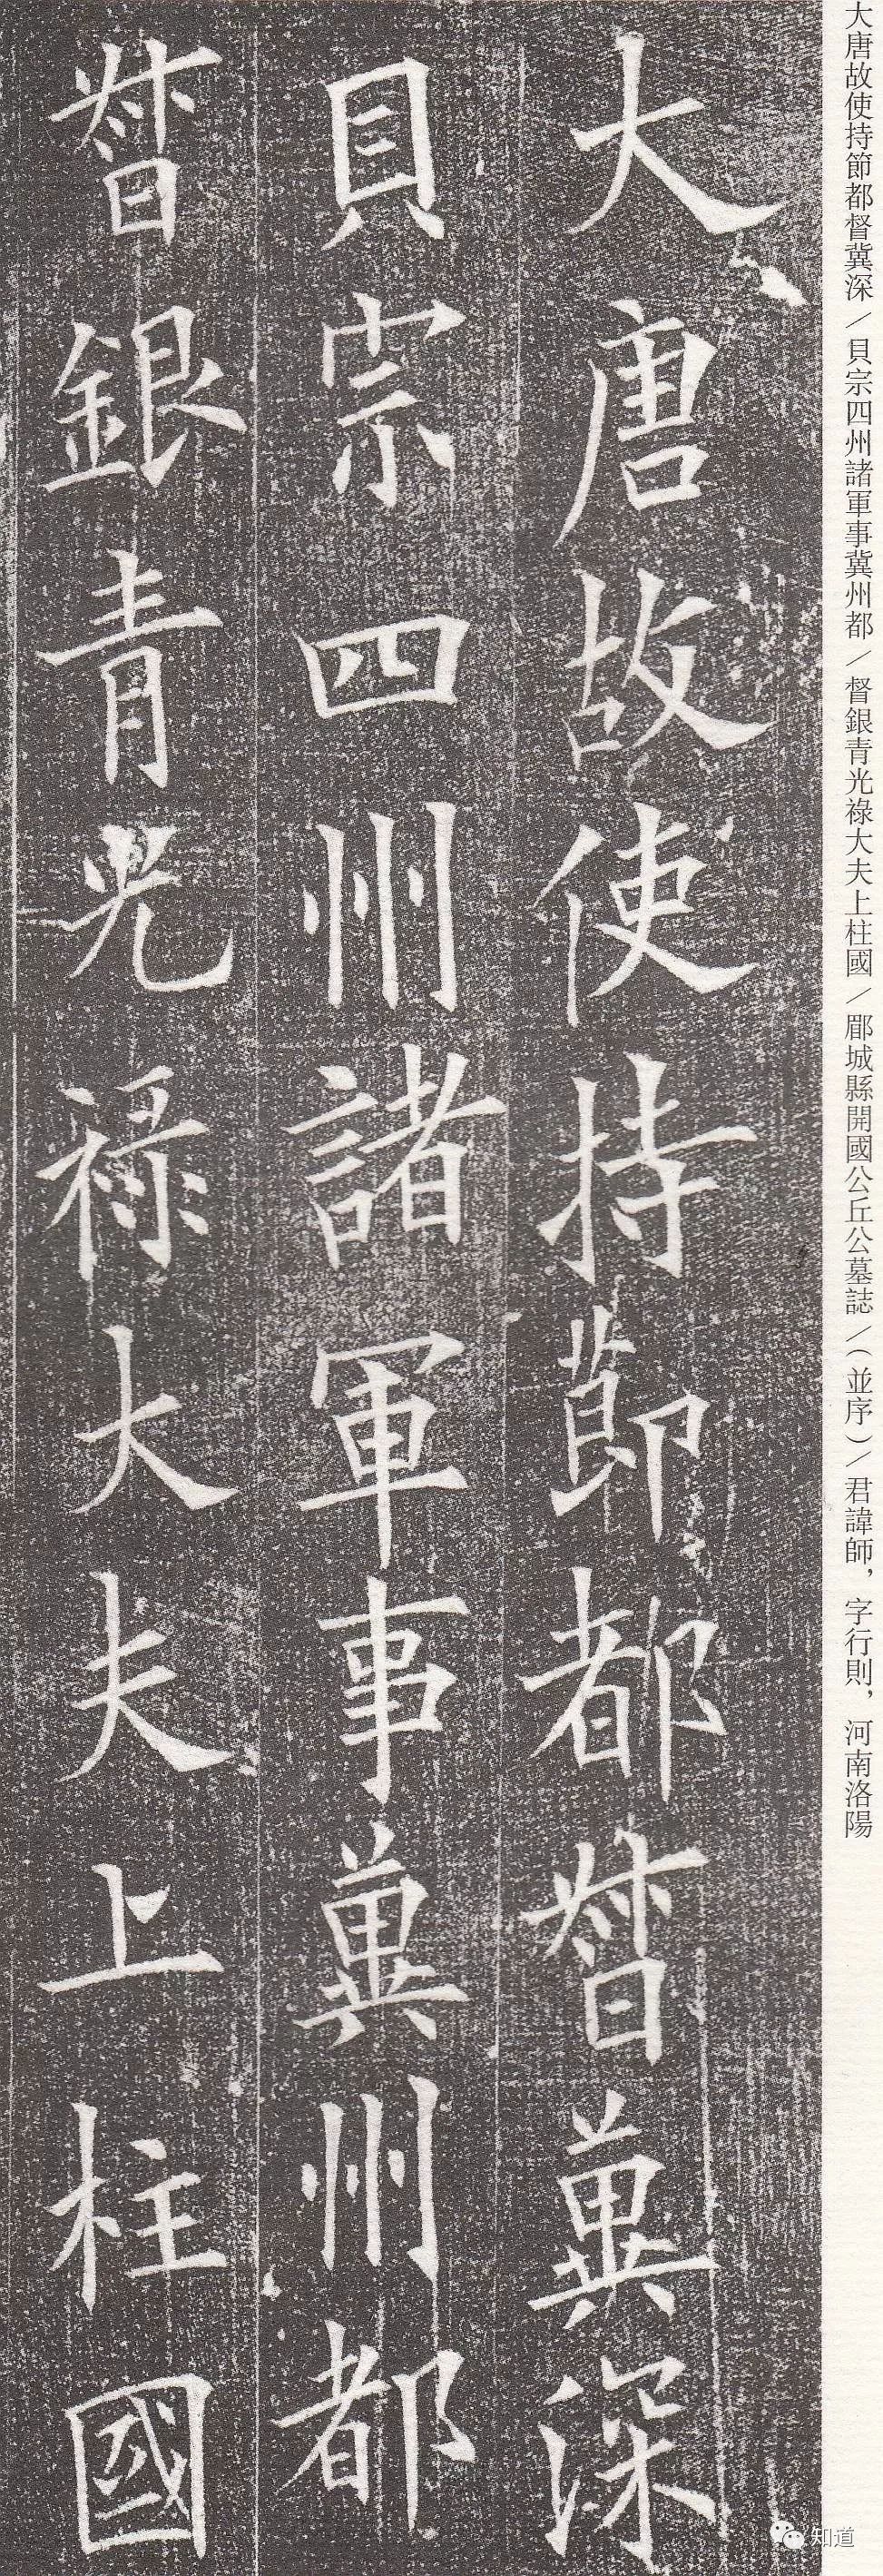 大唐故使持節都督冀深／貝宗四州諸軍事冀州都／督銀青光祿大夫上柱國／郿城縣開國公丘公墓誌／（並序）／君諱師，字行則，河南洛陽
大唐故使持節都督冀深
貝宗四州諸軍事冀州都
督銀青光祿大夫上柱國
知道